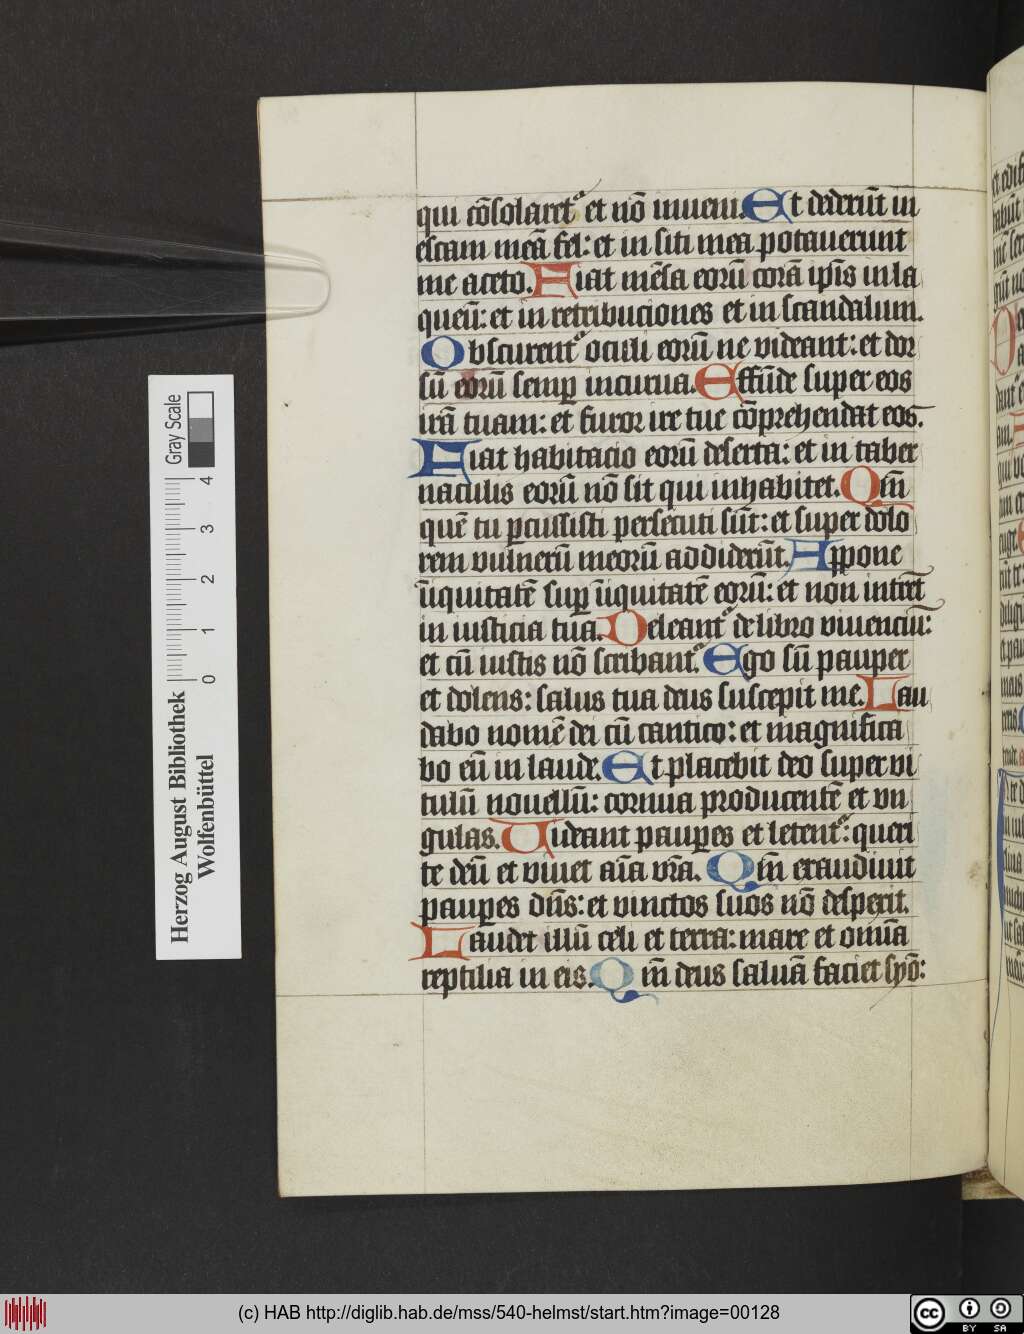 qui cōsolaret᷑ et nō inueni. Et dederūt in
escam meā fel: et in siti mea potauerunt
me aceto. Fiat mēsa eorū corā ipīs in la
queū: et in retribuciones et in scandalum.
Obscurent᷑ oculi eorū ne videant: et dor
sū eorū semꝑ incurua. Effūde super eos
irā tuam: et furor ire tue cōprehendat eos.
Fiat habitacio eorū deserta: et in taber
naculis eorū nō sit qui inhabitet. Qm̄
quē tu ꝑcussisti persecuti sūt: et super dolo
rem vulnerū meorū addiderūt. Appone
īiquitatē suꝑ īiquitatē eorū: et non intrēt
in iusticia tua. Deleant᷑ de libro viuenciū:
et cū iustis nō scribant᷑. Ego sū pauper
et dolens: salus tua deus suscepit me. Lau
dabo nomē dei cū cantico: et magnifica
bo eū in laude. Et placebit deo super vi
tulū nouellū: cornua producentē et vn
gulas. Uideant pauꝑes et letent᷑: queri
te deū et viuet aīa vr̄a. Qm̄ exaudiuit
pauꝑes dn̄s: et vinctos suos nō desperit.
Laudet illū celi et terra: mare et omīa
reptilia in eis. Qm̄ deus saluā faciet syō:
Gray Scale
0 1 2 3 4
Herzog August Bibliothek
Wolfenbüttel
(c) HAB http://diglib.hab.de/mss/540-helmst/start.htm?image=00128
cc BY SA